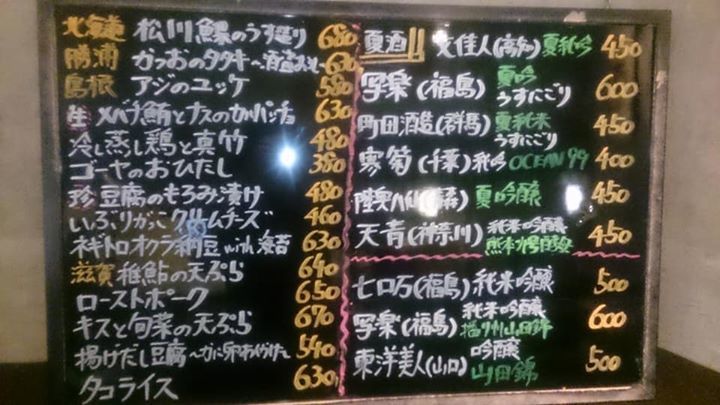 北海道 松川鰈のうす造り 680
勝浦 かつおのタタキ 630
島根 アジのユッケ 580
生メバチ鮪とナスのカルパッチョ 630
冷し蒸し鶏と真竹 480
ゴーヤのおひたし 380
珍 豆腐のもろみ漬け 480
いぶりがっこクリームチーズ 460
ネギトロオクラ納豆 with 海苔 630
滋賀 稚鮎の天ぷら 640
ローストポーク 650
キスと旬菜の天ぷら 670
揚げだし豆腐 〜カニ卵あんかけ〜 540
タコライス 630
夏酒!! 文佳人(高知) 夏純吟 450
写楽(福島) 夏吟 うすにごり 600
町田酒造(群馬) 夏純米 うすにごり 450
寒菊(千葉) 純吟 OCEAN 99 400
陸奥八仙(青森) 夏吟醸 450
天青(神奈川) 純米吟醸 450
七ロ万(福島) 純米吟醸 500
写楽(福島) 純米吟醸 播州山田錦 600
東洋美人(山口) 吟醸 山田錦 500